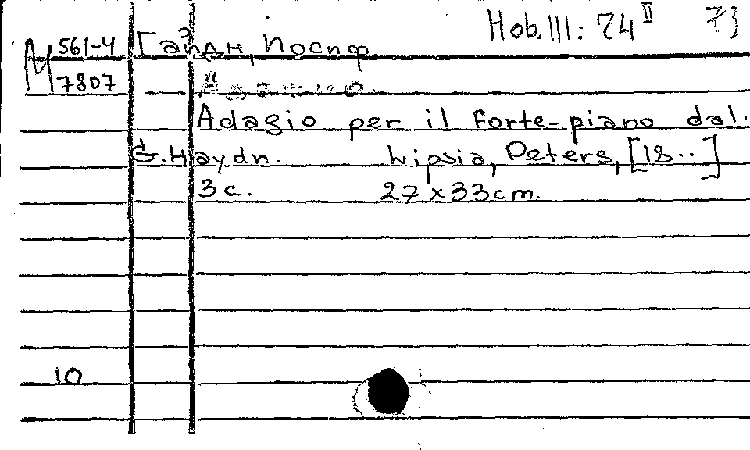 Hob.III: 74 II 73
М 561-4 Гайдн, Иосиф
7807 Адажио
Adagio per il Forte-piano dal.
G. Haydn. Lipsia, Peters, [18..]
3 с. 27x33cm.
10